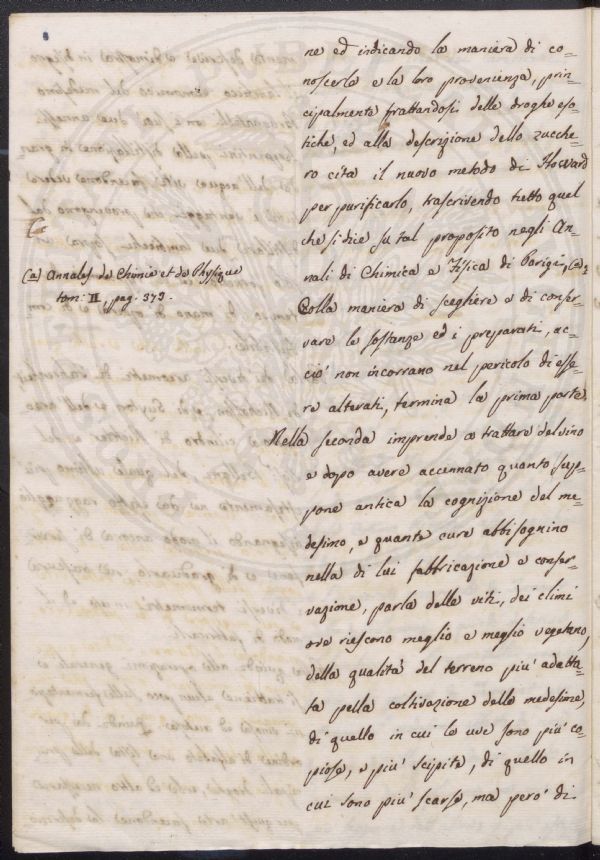 ne ed indicando la maniera di co=
noscerle e la loro provenienza, prin=
cipalmente trattandosi delle droghe eso=
tiche, ed alla descrizione dello zucche=
ro cita il nuovo metodo di Howard
per purificarlo, trascrivendo tutto quel
che si die su tal proposito negli An=
nali di Chimica e Fisica di Parigi, (a)
(a) Annales de Chimie et de Physique
tom: II, pag. 373.
Colla maniera di scegliere e di conser=
vare le sostanze ed i preparati, ac=
ciò non incorrano nel pericolo di esse=
re alterati, termina la prima parte.
Nella seconda imprende a trattare del vino
e dopo avere accennato quanto sup=
pone antica la cognizione del me=
desimo, e quante cure abbisognino
nella di lui fabbricazione e conser=
vazione, parla delle viti, dei climi
ove riescono meglio e meglio vegetano,
della qualità del terreno più adatta=
ta pella coltivazione delle medesime,
di quello in cui le uve sono più co=
piose, e più scipite, di quello in
cui sono più scarse, ma però di